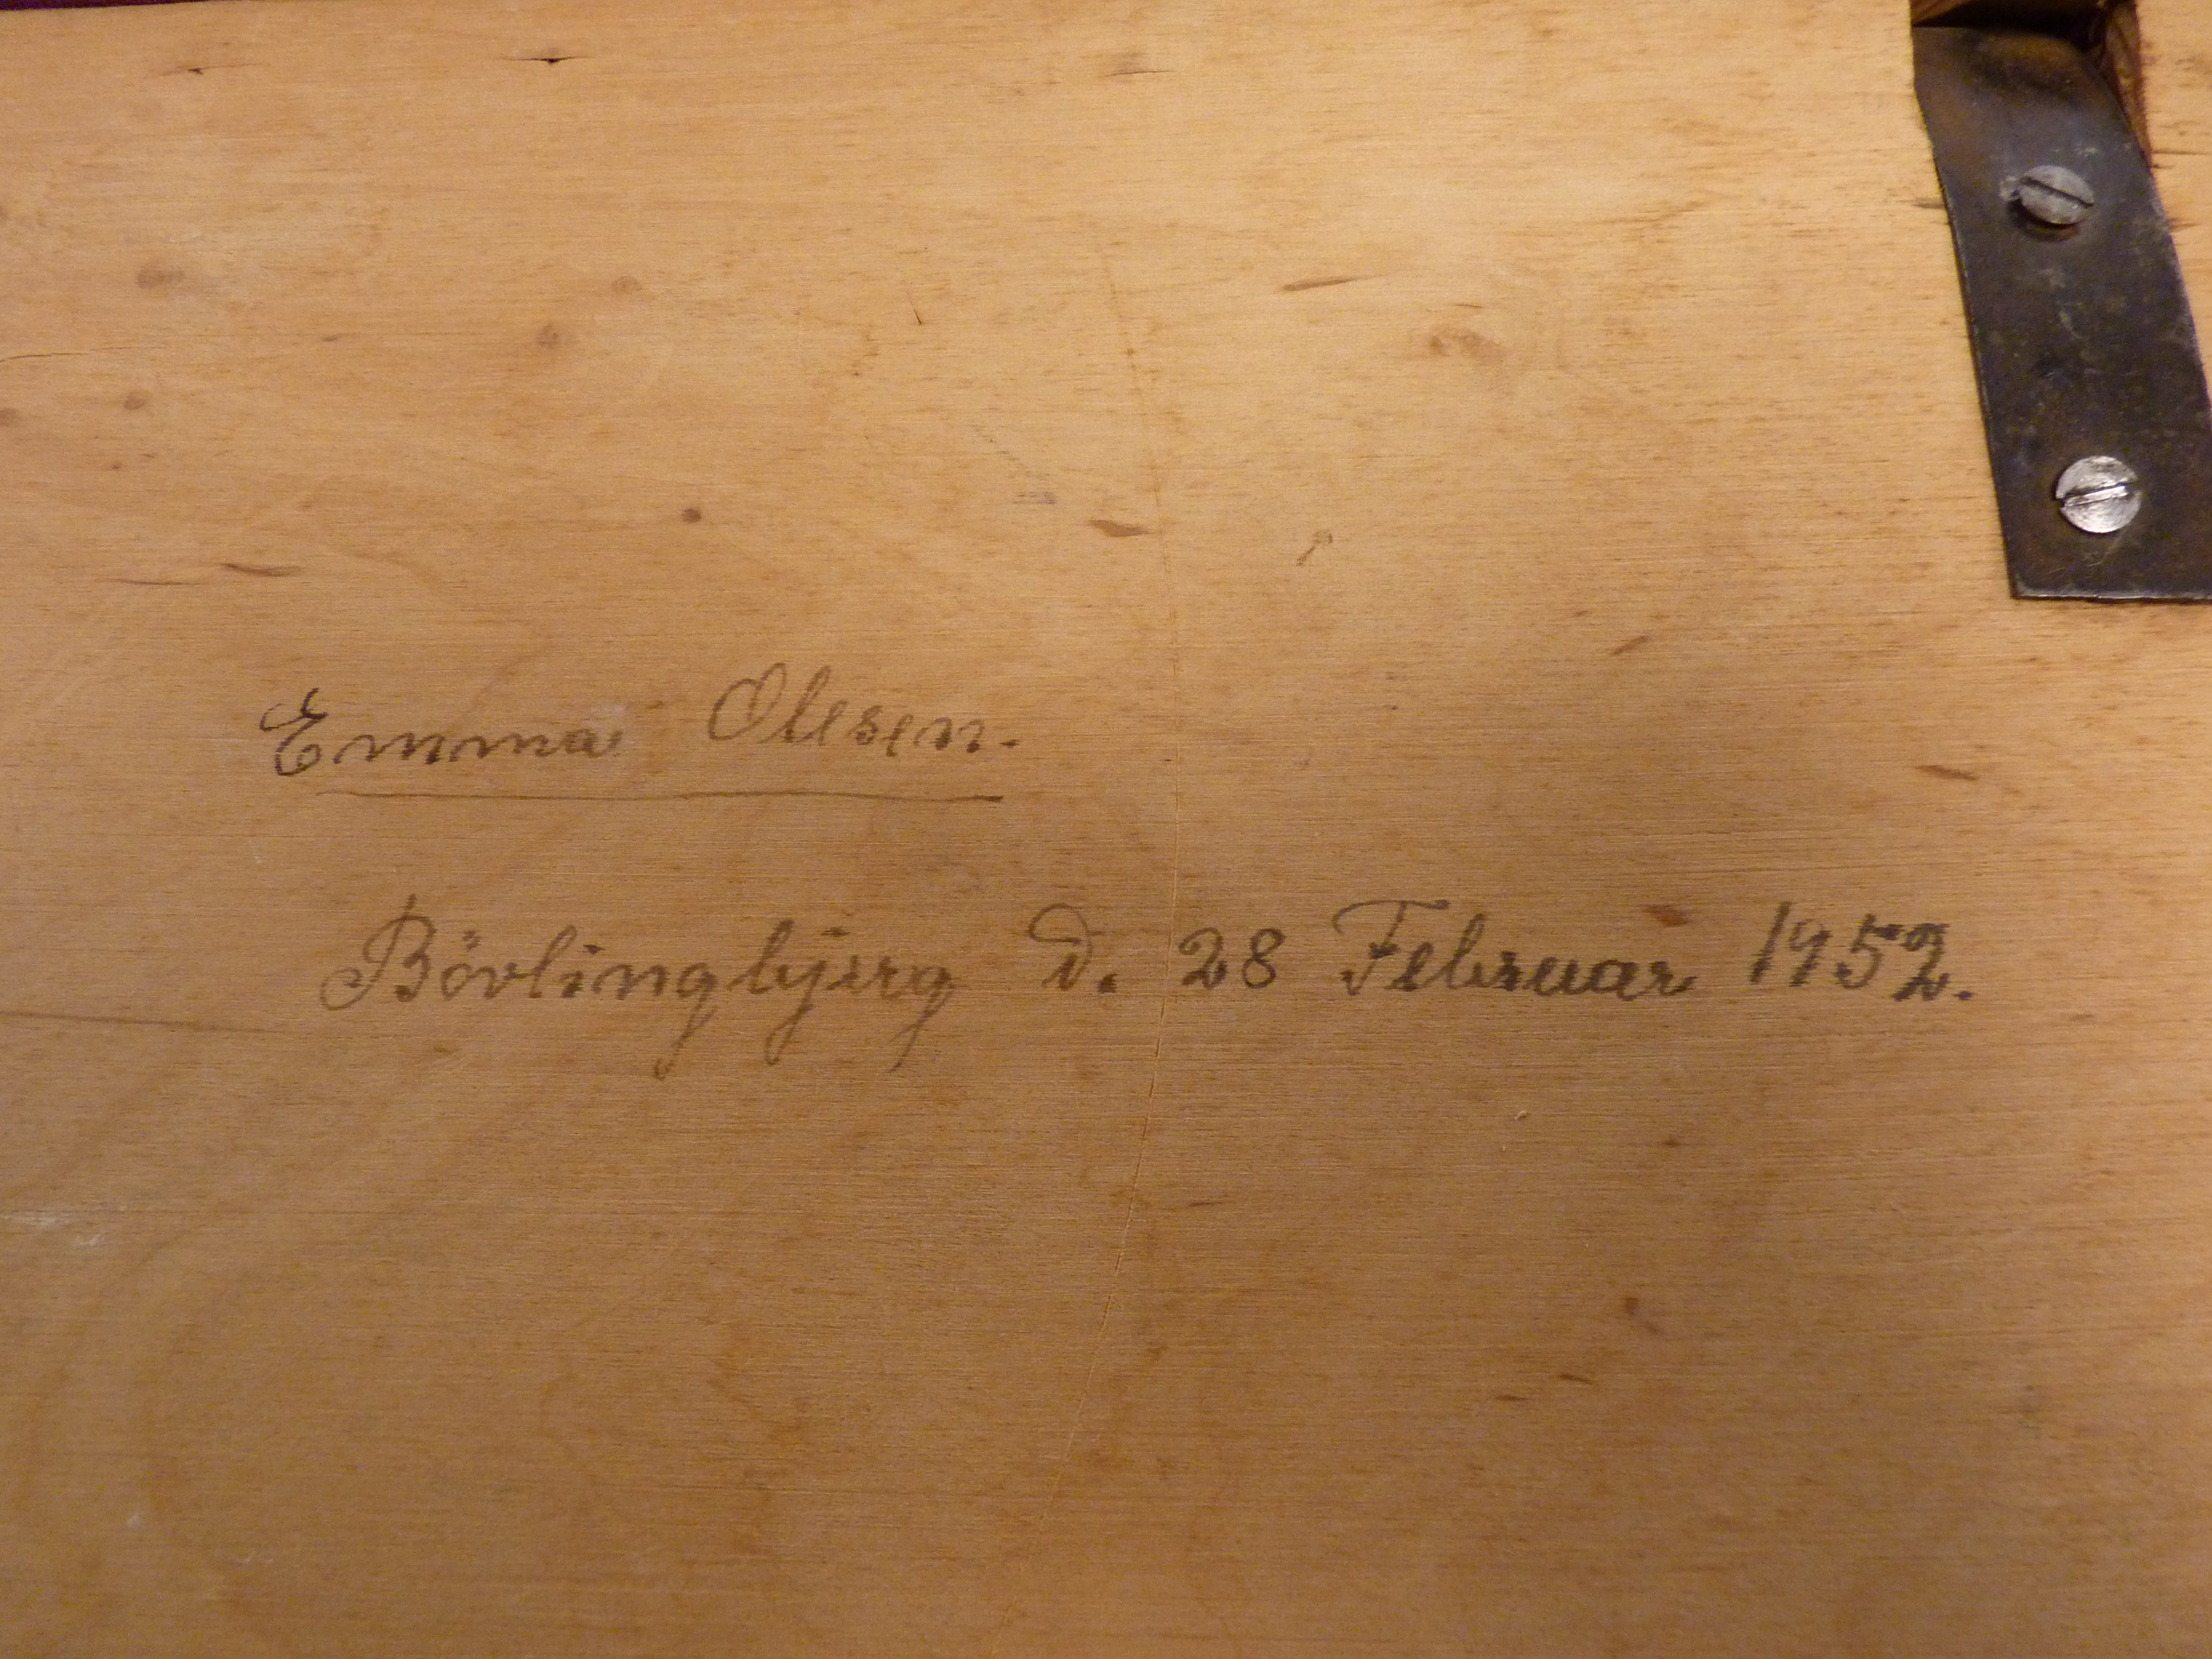 Emma Olesen.
Bövlingbjerg d. 28 Februar 1952.